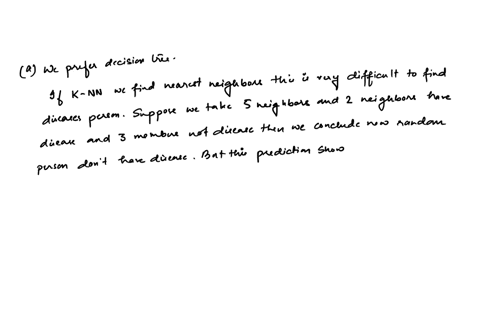 (a) We prefer decision tree.
If K-NN we find nearest neighbors this is very difficult to find
diseases person. Suppose we take 5 neighbors and 2 neighbors have
disease and 3 members not disease then we conclude new random
person don't have disease. But this prediction show